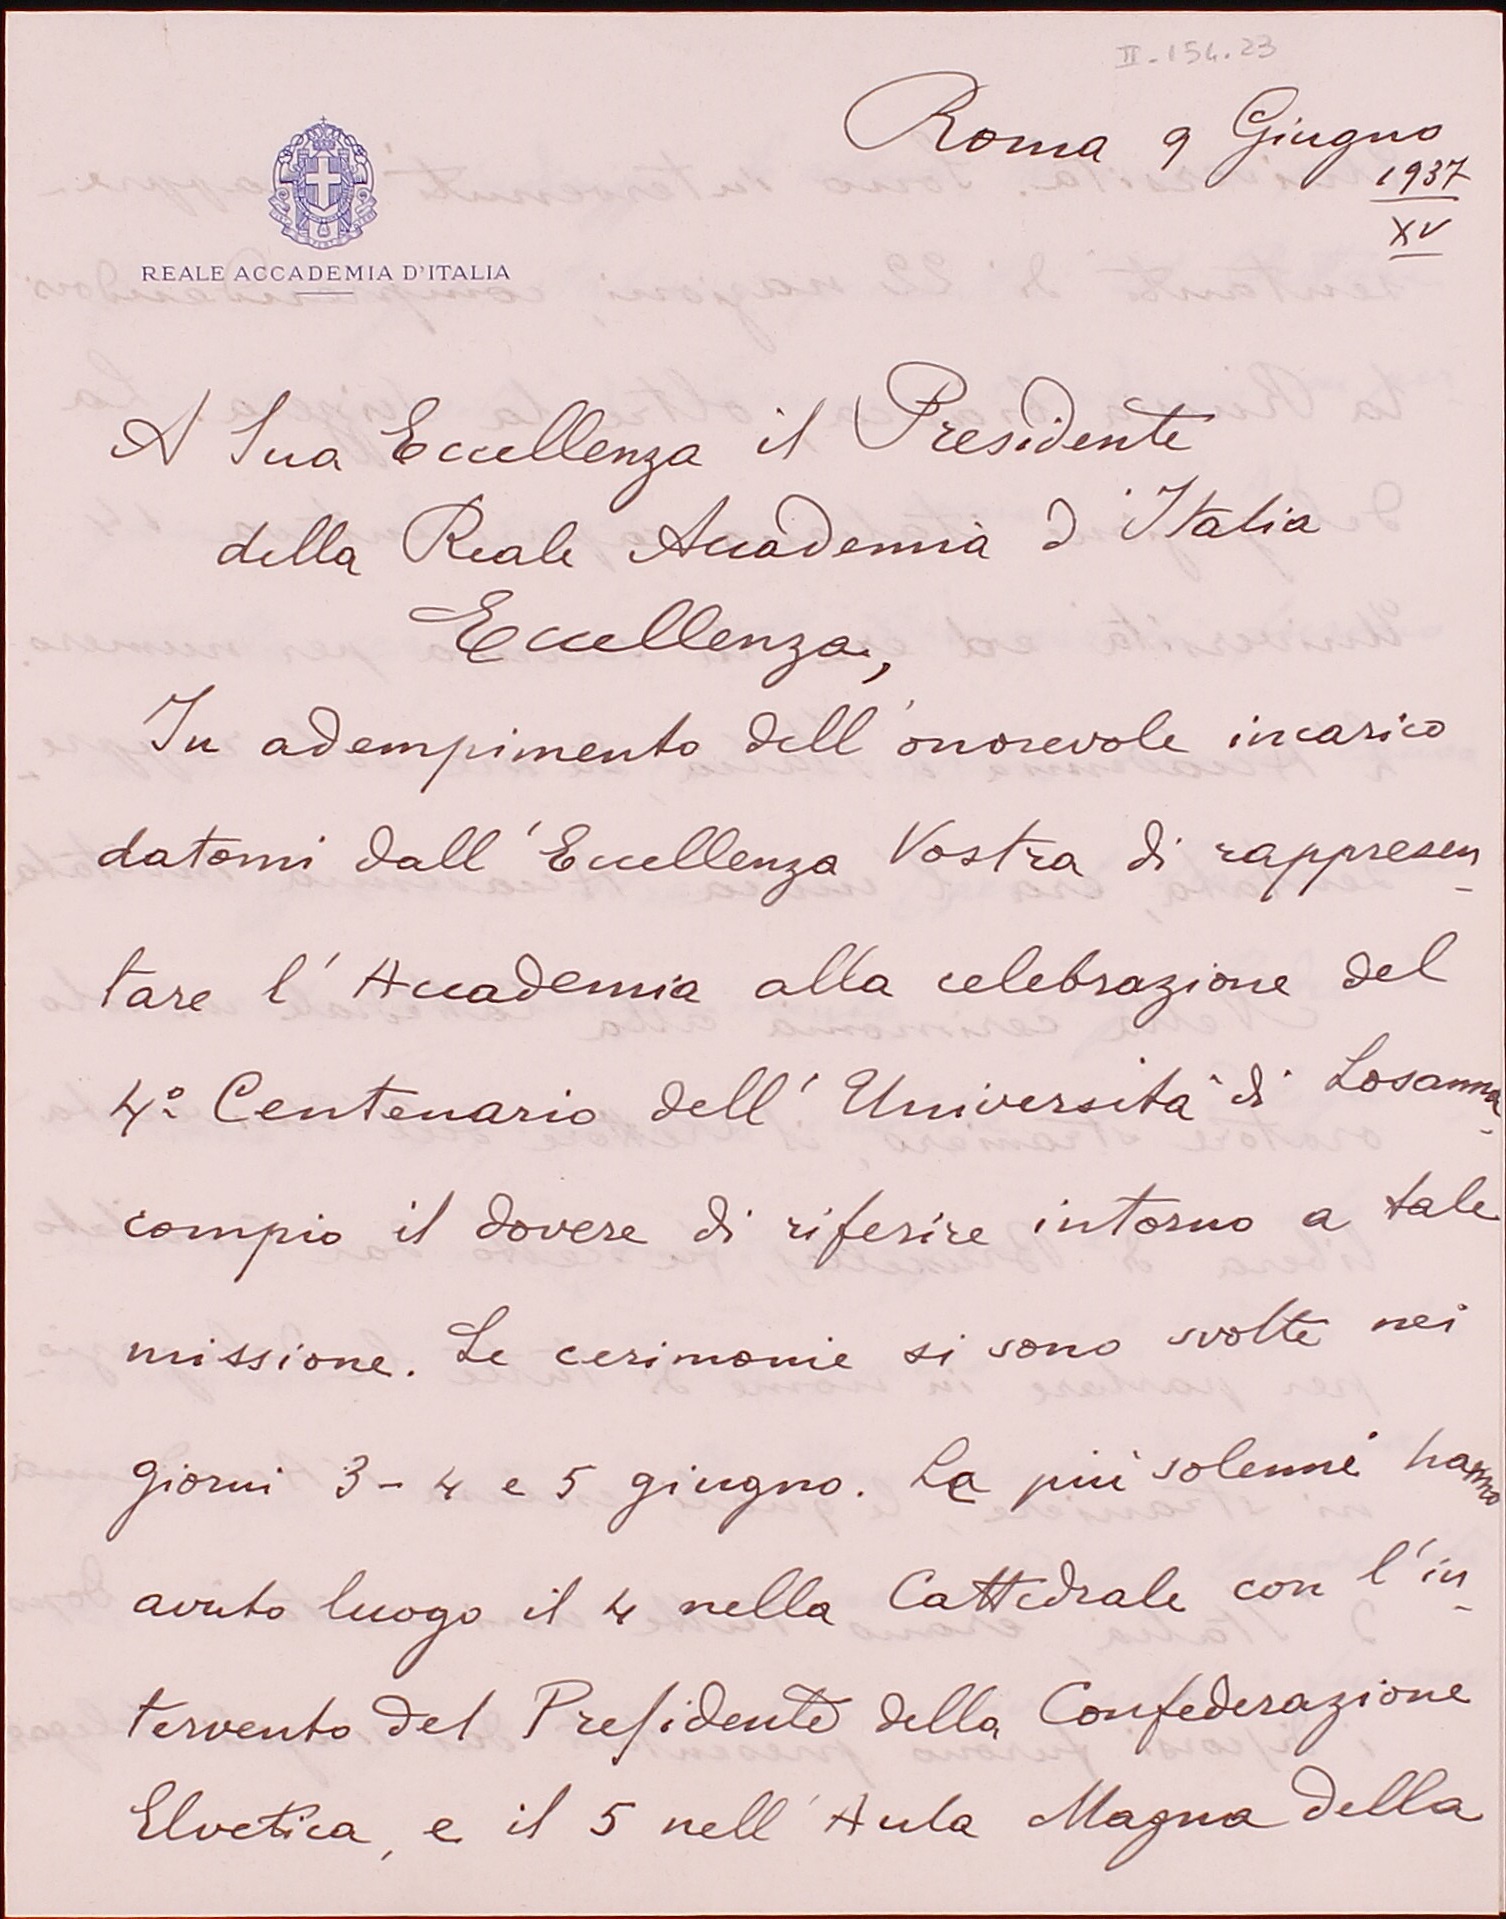 II.154.23
Roma 9 Giugno
1937
XV
REALE ACCADEMIA D'ITALIA
A Sua Eccellenza il Presidente
della Reale Accademia d'Italia
Eccellenza,
In adempimento dell'onorevole incarico
datomi dall'Eccellenza Vostra di rappresen-
tare l'Accademia alla celebrazione del
4º Centenario dell'Università di Losanna
compio il dovere di riferire intorno a tale
missione. Le cerimonie si sono svolte nei
giorni 3-4 e 5 giugno. Le più solenni hanno
avuto luogo il 4 nella Cattedrale con l'in-
tervento del Presidente della Confederazione
Elvetica, e il 5 nell'Aula Magna della